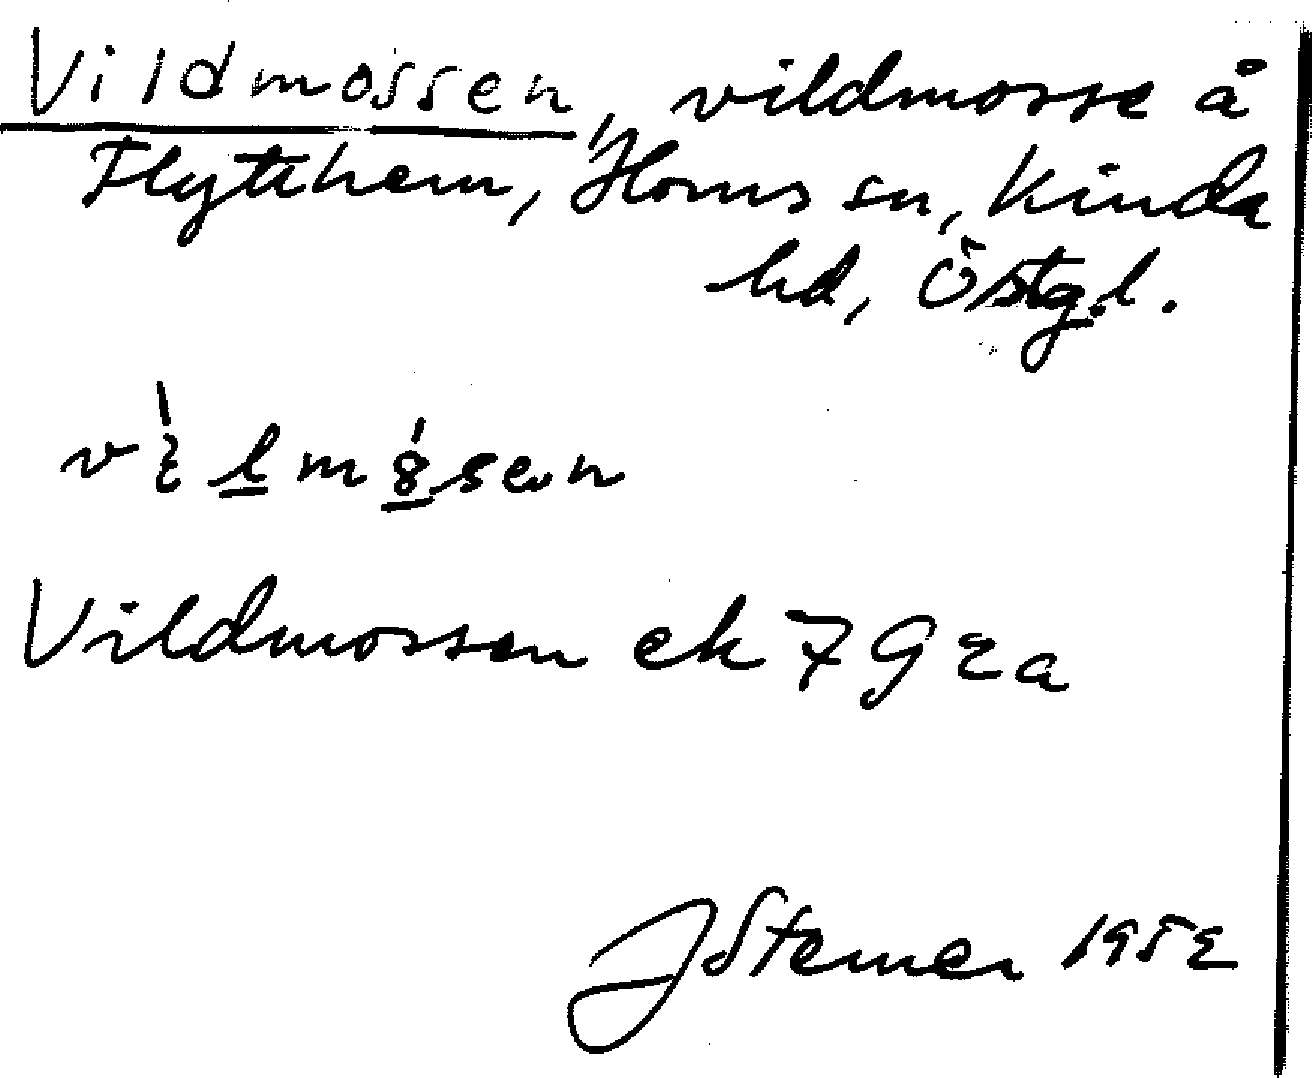 Vildmossen, vildmosse å
Flytthem, Horns sn, Kinda
hd, Östg.l.
Vildmossen ek 7 G 2 a
JStemer 1952